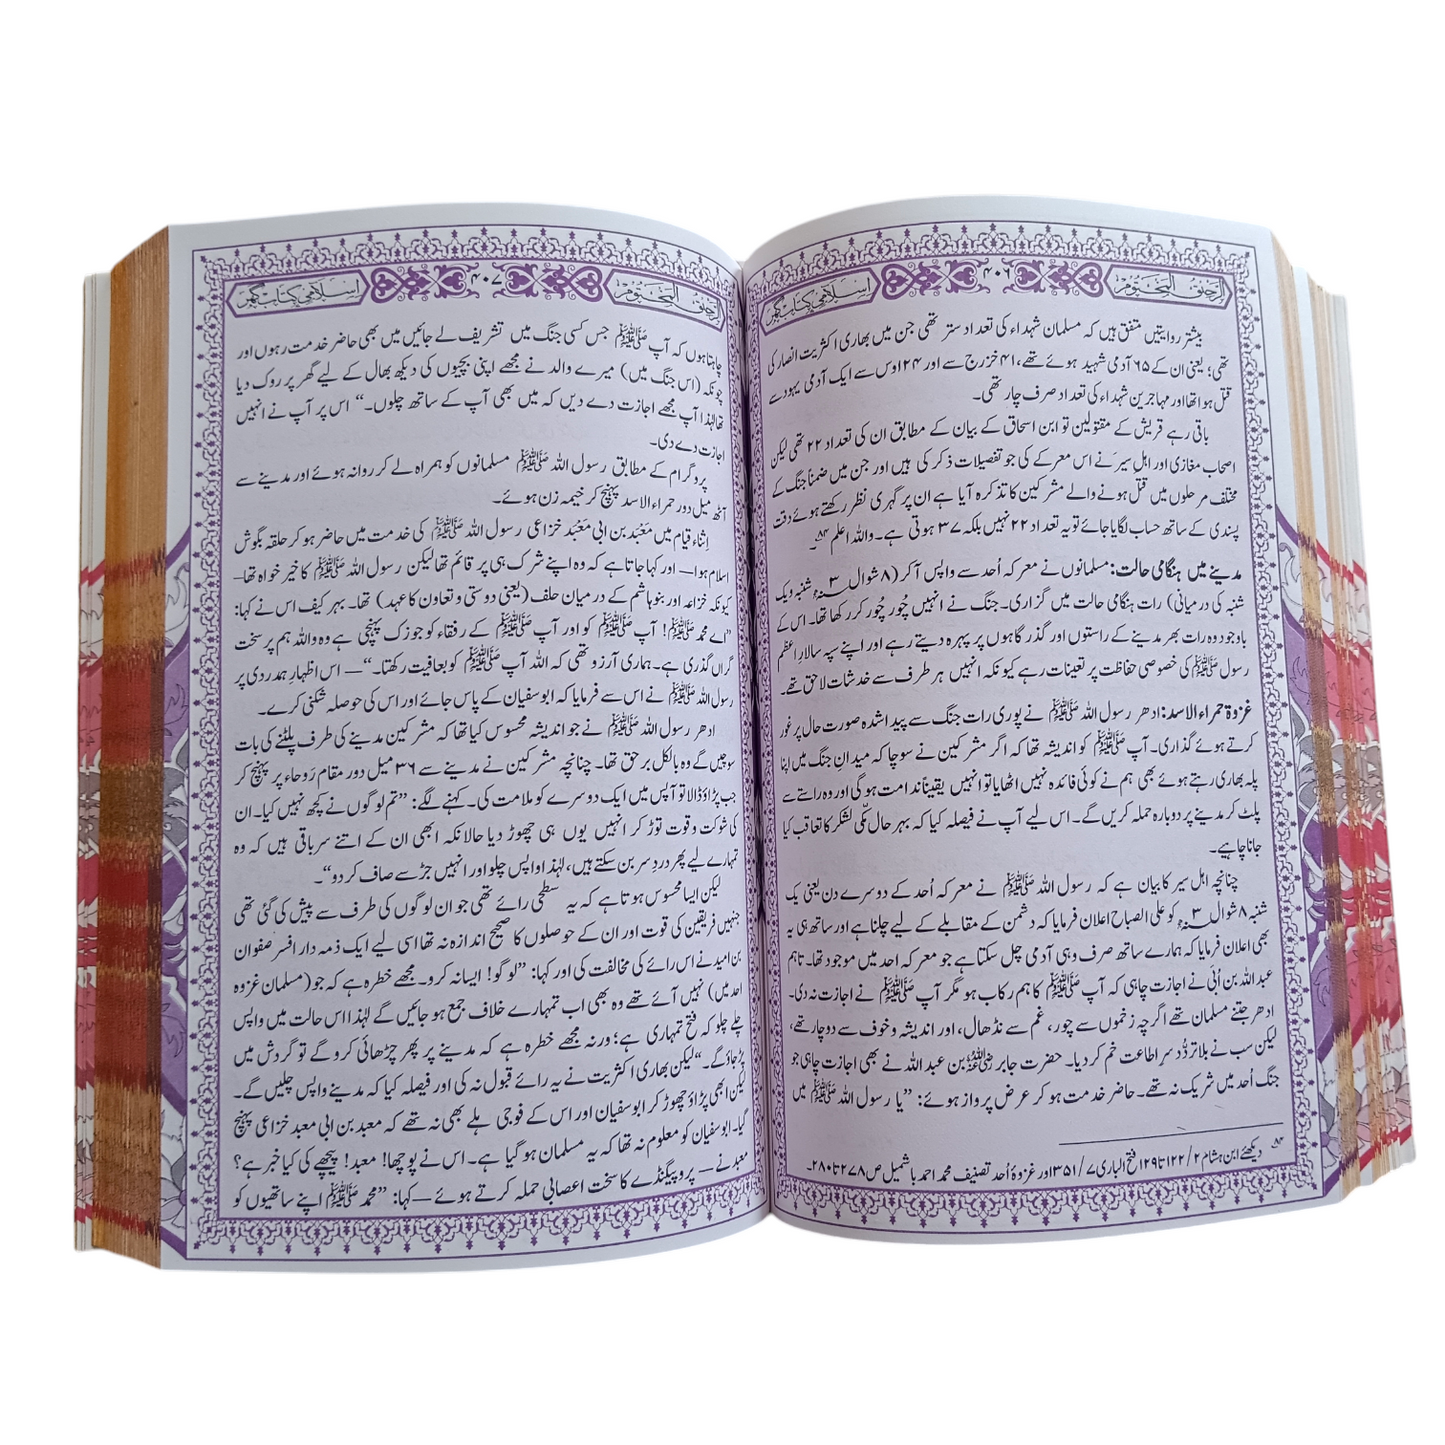 الرحیق المختوم ۴۰۶ اسلامی کتاب گھر
بیشتر روایتیں متفق ہیں کہ مسلمان شہداء کی تعداد ستر تھی جن میں بھاری اکثریت انصار کی
تھی؛ یعنی ان کے ۶۵ آدمی شہید ہوئے تھے، ۴۱ خزرج سے اور ۲۴ اوس سے ایک آدمی یہود سے
قتل ہوا تھا اور مہاجرین شہداء کی تعداد صرف چار تھی۔
باقی رہے قریش کے مقتولین تو ابن اسحاق کے بیان کے مطابق ان کی تعداد ۲۲ تھی لیکن
اصحاب مغازی اور اہل سِیَر نے اس معرکے کی جو تفصیلات ذکر کی ہیں اور جن میں ضمناً جنگ کے
مختلف مرحلوں میں قتل ہونے والے مشرکین کا تذکرہ آیا ہے ان پر گہری نظر رکھتے ہوئے دقت
پسندی کے ساتھ حساب لگایا جائے تو یہ تعداد ۲۲ نہیں بلکہ ۳۷ ہوتی ہے۔ واللہ اعلم ۸۴۔
مدینے میں ہنگامی حالت: مسلمانوں نے معرکہ اُحد سے واپس آ کر (۸ شوال ۳ھ شنبہ ویک
شنبہ کی درمیانی) رات ہنگامی حالت میں گزاری۔ جنگ نے انہیں چُور چُور کر رکھا تھا۔ اس کے
باوجود وہ رات بھر مدینے کے راستوں اور گذرگاہوں پر پہرہ دیتے رہے اور اپنے سپہ سالارِ اعظم
رسول ﷺ کی خصوصی حفاظت پر تعینات رہے کیونکہ انہیں ہر طرف سے خدشات لاحق تھے۔
غزوۃ حمراء الاسد: ادھر رسول اللہ ﷺ نے پوری رات جنگ سے پیدا شدہ صورت حال پر غور
کرتے ہوئے گذاری۔ آپ ﷺ کو اندیشہ تھا کہ اگر مشرکین نے سوچا کہ میدان جنگ میں اپنا
پلہ بھاری رہتے ہوئے بھی ہم نے کوئی فائدہ نہیں اٹھایا تو انہیں یقیناً ندامت ہو گی اور وہ راستے سے
پلٹ کر مدینے پر دوبارہ حملہ کریں گے۔ اس لیے آپ نے فیصلہ کیا کہ بہرحال مکّی لشکر کا تعاقب کیا
جانا چاہیے۔
چنانچہ اہل سیر کا بیان ہے کہ رسول اللہ ﷺ نے معرکہ اُحد کے دوسرے دن یعنی یک
شنبہ ۸ شوال ۳ھ کو علی الصباح اعلان فرمایا کہ دشمن کے مقابلے کے لیے چلنا ہے اور ساتھ ہی یہ
بھی اعلان فرمایا کہ ہمارے ساتھ صرف وہی آدمی چل سکتا ہے جو معرکہ احد میں موجود تھا۔ تاہم
عبداللہ بن اُبَی نے اجازت چاہی کہ آپ ﷺ کا ہم رکاب ہو مگر آپ ﷺ نے اجازت نہ دی۔
ادھر جتنے مسلمان تھے اگرچہ زخموں سے چور، غم سے نڈھال، اور اندیشہ و خوف سے دوچار تھے،
لیکن سب نے بلا تردُّد سرِ اطاعت خم کر دیا۔ حضرت جابر رضی اللہ عنہ بن عبداللہ نے بھی اجازت چاہی جو
جنگ اُحد میں شریک نہ تھے۔ حاضر خدمت ہو کر عرض پرواز ہوئے: ”یا رسول اللہ ﷺ میں
۸۴ دیکھئے ابن ہشام ۲/ ۱۲۲ تا ۱۲۹ فتح الباری ۷/ ۳۵۱ اور غزوۂ اُحد تصنیف محمد احمد باشمیل ص ۲۷۸ تا ۲۸۰۔
الرحیق المختوم ۴۰۷ اسلامی کتاب گھر
چاہتا ہوں کہ آپ ﷺ جس کسی جنگ میں تشریف لے جائیں میں بھی حاضر خدمت رہوں اور
چونکہ (اس جنگ میں) میرے والد نے مجھے اپنی بچیوں کی دیکھ بھال کے لیے گھر پر روک دیا
تھا لہٰذا آپ مجھے اجازت دے دیں کہ میں بھی آپ کے ساتھ چلوں۔“ اس پر آپ نے انہیں
اجازت دے دی۔
پروگرام کے مطابق رسول اللہ ﷺ مسلمانوں کو ہمراہ لے کر روانہ ہوئے اور مدینے سے
آٹھ میل دور حمراء الاسد پہنچ کر خیمہ زن ہوئے۔
اِثناء قیام میں مَعبَد بن ابی مَعبَد خزاعی رسول اللہ ﷺ کی خدمت میں حاضر ہو کر حلقہ بگوش
اسلام ہوا — اور کہا جاتا ہے کہ وہ اپنے شرک ہی پر قائم تھا لیکن رسول اللہ ﷺ کا خیر خواہ تھا —
کیونکہ خزاعہ اور بنو ہاشم کے درمیان حلف (یعنی دوستی و تعاون کا عہد) تھا۔ بہرکیف اس نے کہا:
”اے محمد ﷺ! آپ ﷺ کو اور آپ ﷺ کے رفقاء کو جو زک پہنچی ہے وہ واللہ ہم پر سخت
گراں گذری ہے۔ ہماری آرزو تھی کہ اللہ آپ ﷺ کو بعافیت رکھتا۔“ — اس اظہارِ ہمدردی پر
رسول اللہ ﷺ نے اس سے فرمایا کہ ابوسفیان کے پاس جائے اور اس کی حوصلہ شکنی کرے۔
ادھر رسول اللہ ﷺ نے جو اندیشہ محسوس کیا تھا کہ مشرکین مدینے کی طرف پلٹنے کی بات
سوچیں گے وہ بالکل برحق تھا۔ چنانچہ مشرکین نے مدینے سے ۳۶ میل دور مقام رَوحاء پر پہنچ کر
جب پڑاؤ ڈالا تو آپس میں ایک دوسرے کو ملامت کی۔ کہنے لگے: ”تم لوگوں نے کچھ نہیں کیا۔ ان
کی شوکت و قوت توڑ کر انہیں یوں ہی چھوڑ دیا حالانکہ ابھی ان کے اتنے سر باقی ہیں کہ وہ
تمہارے لیے پھر دردِ سر بن سکتے ہیں، لہٰذا واپس چلو اور انہیں جڑ سے صاف کر دو“۔
لیکن ایسا محسوس ہوتا ہے کہ یہ سطحی رائے تھی جو ان لوگوں کی طرف سے پیش کی گئی تھی
جنہیں فریقین کی قوت اور ان کے حوصلوں کا صحیح اندازہ نہ تھا اسی لیے ایک ذمہ دار افسر صفوان
بن امیہ نے اس رائے کی مخالفت کی اور کہا: ”لوگو! ایسا نہ کرو۔ مجھے خطرہ ہے کہ جو (مسلمان غزوہ
احد میں) نہیں آئے تھے وہ بھی اب تمہارے خلاف جمع ہو جائیں گے لہٰذا اس حالت میں واپس
چلے چلو کہ فتح تمہاری ہے؛ ورنہ مجھے خطرہ ہے کہ مدینے پر پھر چڑھائی کرو گے تو گردش میں
پڑ جاؤ گے۔“ لیکن بھاری اکثریت نے یہ رائے قبول نہ کی اور فیصلہ کیا کہ مدینے واپس چلیں گے۔
لیکن ابھی پڑاؤ چھوڑ کر ابوسفیان اور اس کے فوجی ہلے بھی نہ تھے کہ معبد بن ابی معبد خزاعی پہنچ
گیا۔ ابوسفیان کو معلوم نہ تھا کہ یہ مسلمان ہو گیا ہے۔ اس نے پوچھا! معبد! پیچھے کی کیا خبر ہے؟
معبد نے — پروپیگنڈے کا سخت اعصابی حملہ کرتے ہوئے — کہا: ”محمد ﷺ اپنے ساتھیوں کو